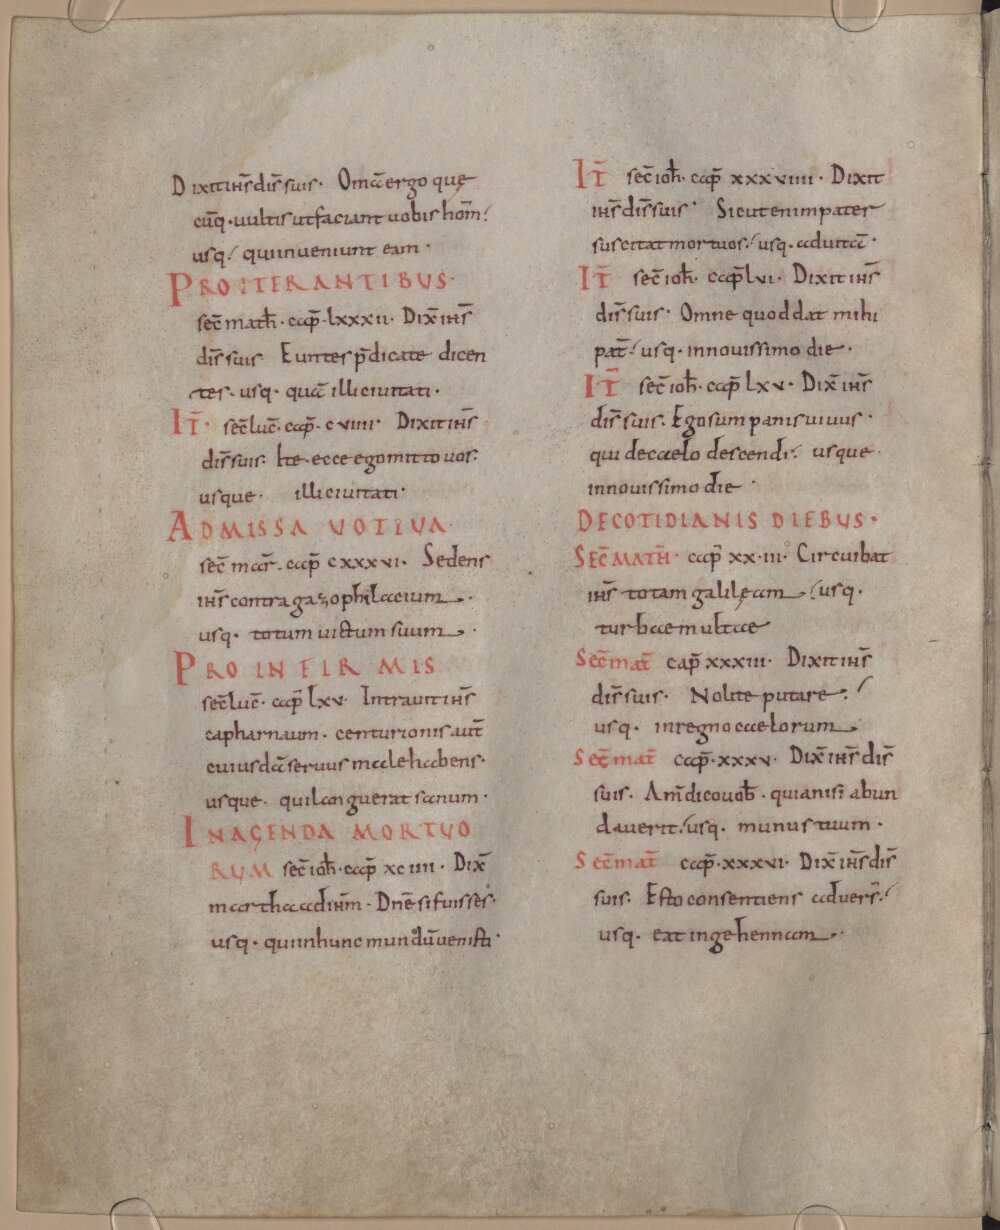 Dixit ih̅s dis̅ suis· Om̅a ergo quę
cu̅q· uultis ut faciant uobis hom̅·
usq· qui inueniunt eam·
PRO ITERANTIBUS·
sec̅ math̅· cap̅· lxxxii· Dix̅ ih̅s
dis̅ suis Euntes p̅dicate dicen
tes· usq· qua̅ illi ciuitati·
IT̅· sec̅ luc̅· cap̅· cviiii· Dixit ih̅s
dis̅ suis· Ite· ecce ego mitto uos·
usque· illi ciuitati·
AD MISSA VOTIVA·
sec̅ mar̅· cap̅ cxxxvi· Sedens
ih̅s contra gazophilacium·
usq· totum uictum suum·
PRO INFIRMIS
sec̅ luc̅· cap̅ lxv· Intrauit ih̅s
capharnaum· centurionis aut̅
cuiusda̅ seruus male habens·
usque· qui languerat sanum·
IN AGENDA MORTUO
RUM sec̅ ioh̅· cap̅ xciiii· Dix̅
martha ad ih̅m· Dn̅e si fuisses·
usq· qui in hunc mundu̅ uenisti·
IT̅ sec̅ ioh̅· cap̅ xxxviiii· Dixit
ih̅s dis̅ suis· Sicut enim pater
suscitat mortuos· usq· ad uita̅·
IT̅ sec̅ ioh̅· cap̅ lvi· Dixit ih̅s
dis̅ suis· Omne quod dat mihi
pat̅· usq· in nouissimo die·
IT̅ sec̅ ioh̅· cap̅ lxv· Dix̅ ih̅s
dis̅ suis· Ego sum panis uiuus·
qui de caelo descendi· usque
in nouissimo die·
DE COTIDIANIS DIEBUS·
SEC̅ MATH̅· cap̅ xx·iii· Circuibat
ih̅s totam galileam· usq·
turbae multae
Sec̅ mat̅ cap̅ xxxiii· Dixit ih̅s
dis̅ suis· Nolite putare·
usq· in regno caelorum·
Sec̅ mat̅ cap̅· xxxv· Dix̅ ih̅s dis̅
suis· Am̅ dico uob̅· quia nisi abun
dauerit· usq· munus tuum·
Sec̅ mat̅ cap̅· xxxvi· Dix̅ ih̅s dis̅
suis· Esto consentiens aduers̅·
usq· eat in gehennam·